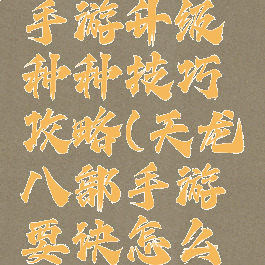 手游升级
种种技巧
攻略(天龙
八部手游
要诀怎么